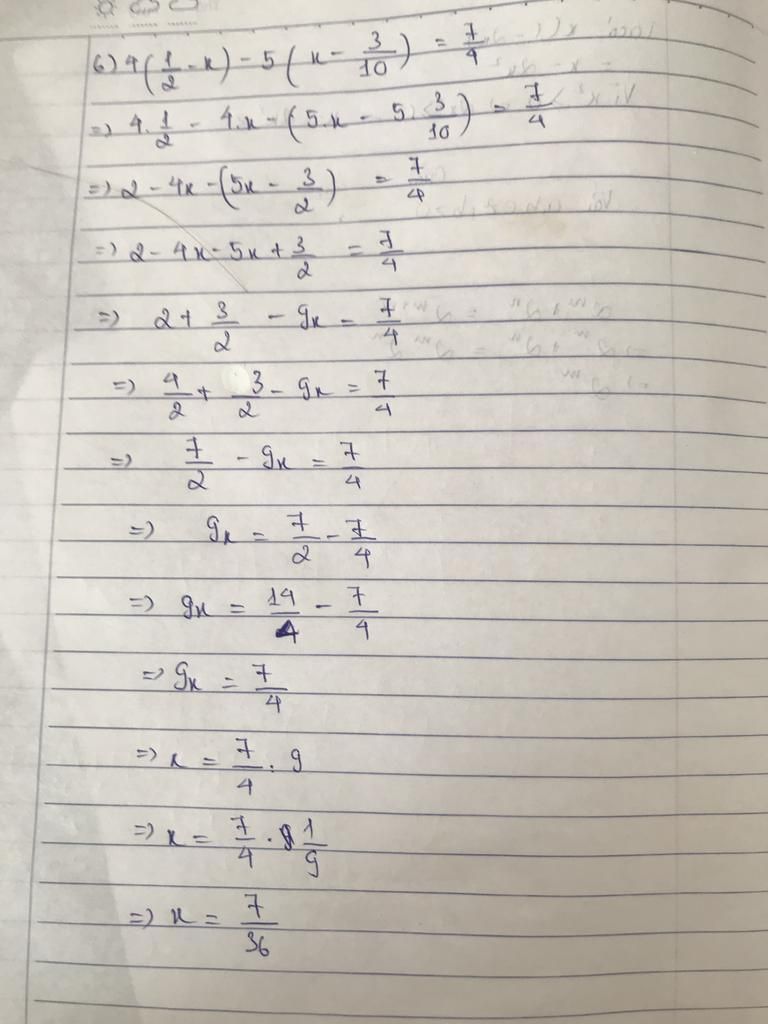 6) 4(1/2 - x) - 5(x - 3/10) = 7/4
=> 4.1/2 - 4.x - (5.x - 5.3/10) = 7/4
=> 2 - 4x - (5x - 3/2) = 7/4
=> 2 - 4x - 5x + 3/2 = 7/4
=> 2 + 3/2 - 9x = 7/4
=> 4/2 + 3/2 - 9x = 7/4
=> 7/2 - 9x = 7/4
=> 9x = 7/2 - 7/4
=> 9x = 14/4 - 7/4
=> 9x = 7/4
=> x = 7/4 : 9
=> x = 7/4 . 1/9
=> x = 7/36